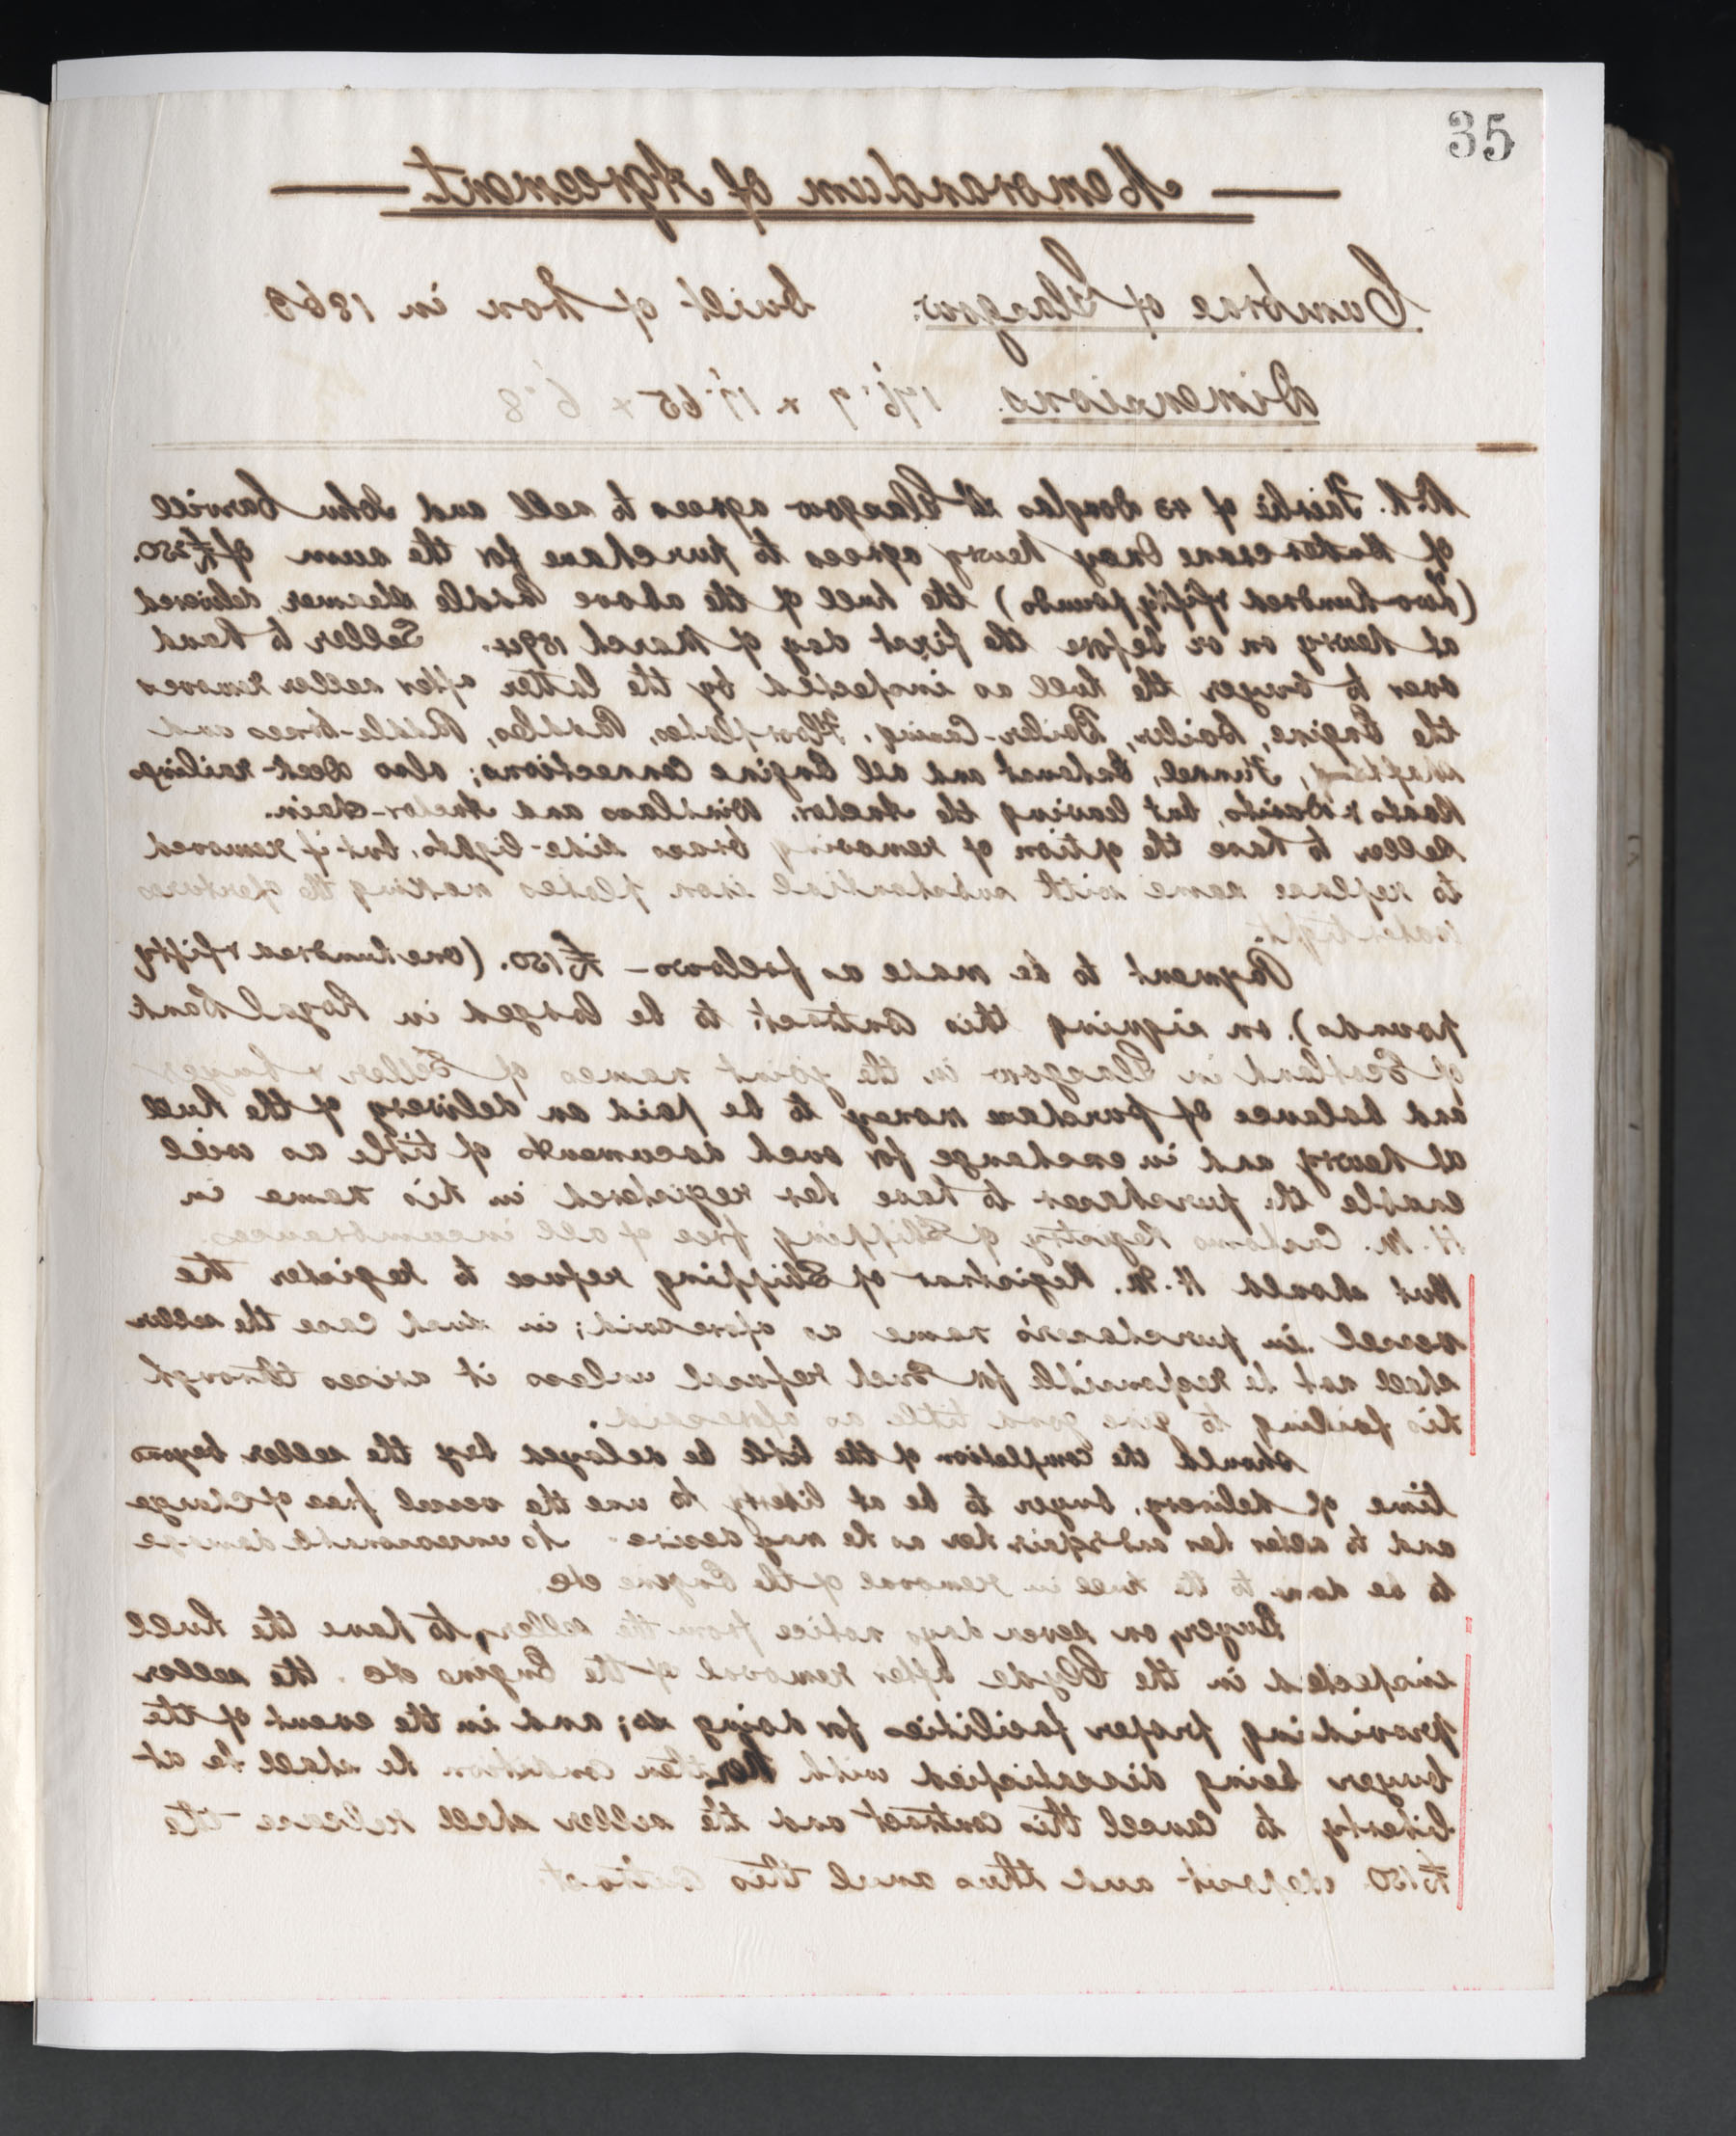 35
Memorandum of Agreement
Cumbrae of Glasgow. built of Iron in 1863
Dimensions. 176'.7 × 17'.65 × 6'.8
of 43 Douglas St Glasgow agrees to sell and John Carvill
of Quay Newry agrees to purchase for the sum of £250.
(Two-hundred & fifty pounds) the hull of the above Paddle Steamer, delivered
at Newry on or before the first day of March 1894. Seller to hand
over to buyer the hull as inspected by the latter after seller removes
the Engine, Boiler, Boiler-Casing, Floor-plates, Paddles, Paddle-boxes and
Shafting, Funnel, Exhaust and all Engine Connections; also Deck-railings
Boats & Davits, but leaving the Anchor, Windlass and Anchor-chain.
Seller to have the option of removing brass side-lights, but if removed
to replace same with substantial iron plates making the apertures
watertight.
Payment to be made as follows - £150. (One hundred & fifty
pounds). on signing this Contract; to be lodged in Royal Bank
of Scotland in Glasgow in the joint names of Seller & Buyer
and balance of purchase money to be paid on delivery of the hull
at Newry and in exchange for such documents of title as will
enable the purchaser to have her registered in his name in
H. M. Customs Registry of Shipping free of all incumbrances.
But should H. M. Registrar of Shipping refuse to Register the
vessel in purchaser's name as aforesaid; in such Case the seller
shall not be Responsible for Such refusal unless it arises through
his failing to give good title as aforesaid.
Should the Completion of the title be delayed by the seller beyond
time of delivery, buyer to be at liberty to use the vessel free of Charge
and to alter her and repair her as he may desire - No unreasonable damage
to be done to the hull in removal of the Engine etc.
Buyer, on seven days notice from the seller, to have the hull
inspected in the Clyde after removal of the Engine etc. the seller
providing proper facilities for doing so; and in the event of the
buyer being dissatisfied with her then condition he shall be at
liberty to Cancel this Contract and the seller shall release the
£150 deposit and thus annul this Contract.